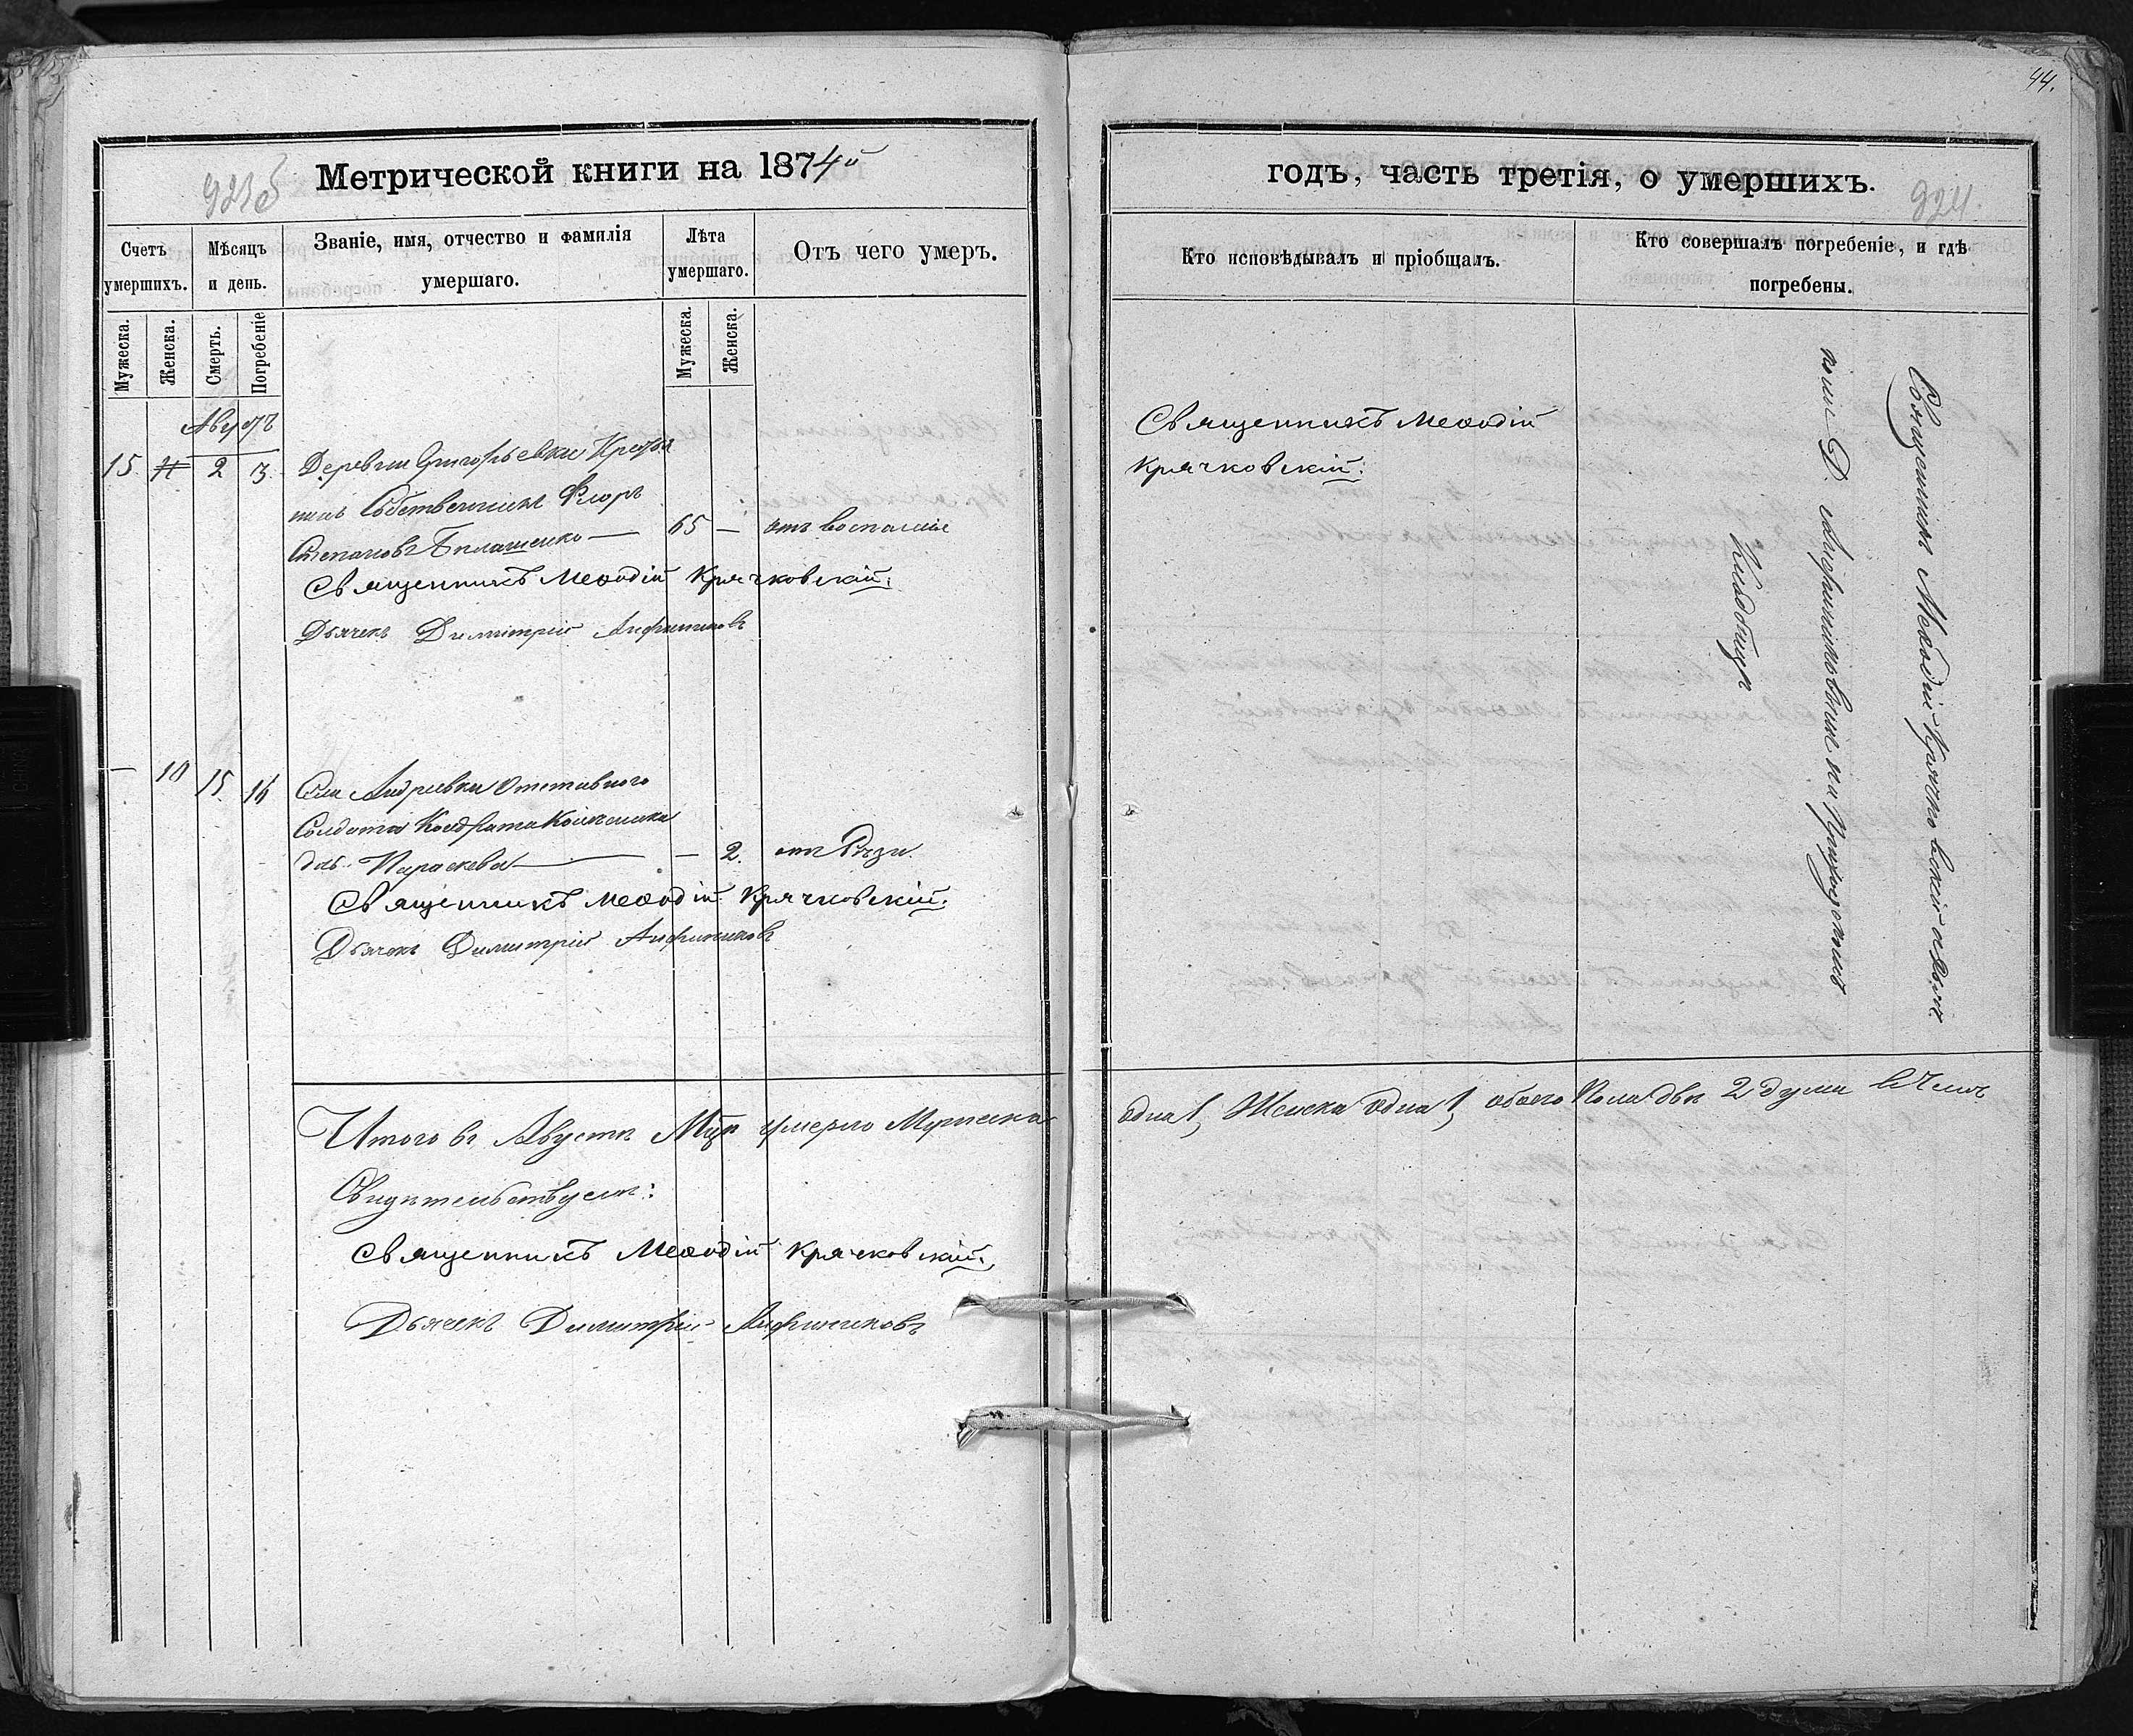 Метрической книги на 1874й
Счетъ умершихъ.
Мѣсяцъ и день.
Званіе, имя, отчество и фамилія
умершаго.
Лѣта умершаго.
Отъ чего умеръ.
Мужеска.
Женска.
Смерть.
Погребеніе
Мужеска.
Женска.
Августъ
15 2 3 Деревни Григорьевки Крестья
нинъ Собственникъ Флоръ
Степановъ 65 — отъ воспаленія
Священникъ Меѳодій Крячковскій.
Дьячекъ Димитрій Анфиногеновъ
— 10 15. 16 Села Андреевки Отставного
Солдата Кондрата
дочь Параскева — — 2. отъ
Священникъ Меѳодій Крячковскій.
Дьячекъ Димитрій
Итого въ Августѣ М-цѣ умерло Мужеска
Свидѣтельствуемъ:
Священникъ Меѳодій Крячковскій.
Дьячекъ Димитрій
44.
годъ, часть третія, о умершихъ.
924.
Кто исповѣдывалъ и пріобщалъ.
Кто совершалъ погребеніе, и гдѣ
погребены.
Священникъ Меѳодій
Крячковскій.
Священникъ Меѳодій Крячковскій съ дьяч
комъ Д. на Приходскомъ
Кладбищѣ
одна 1, Женска одна 1, обоего Пола двѣ 2 души въ чемъ